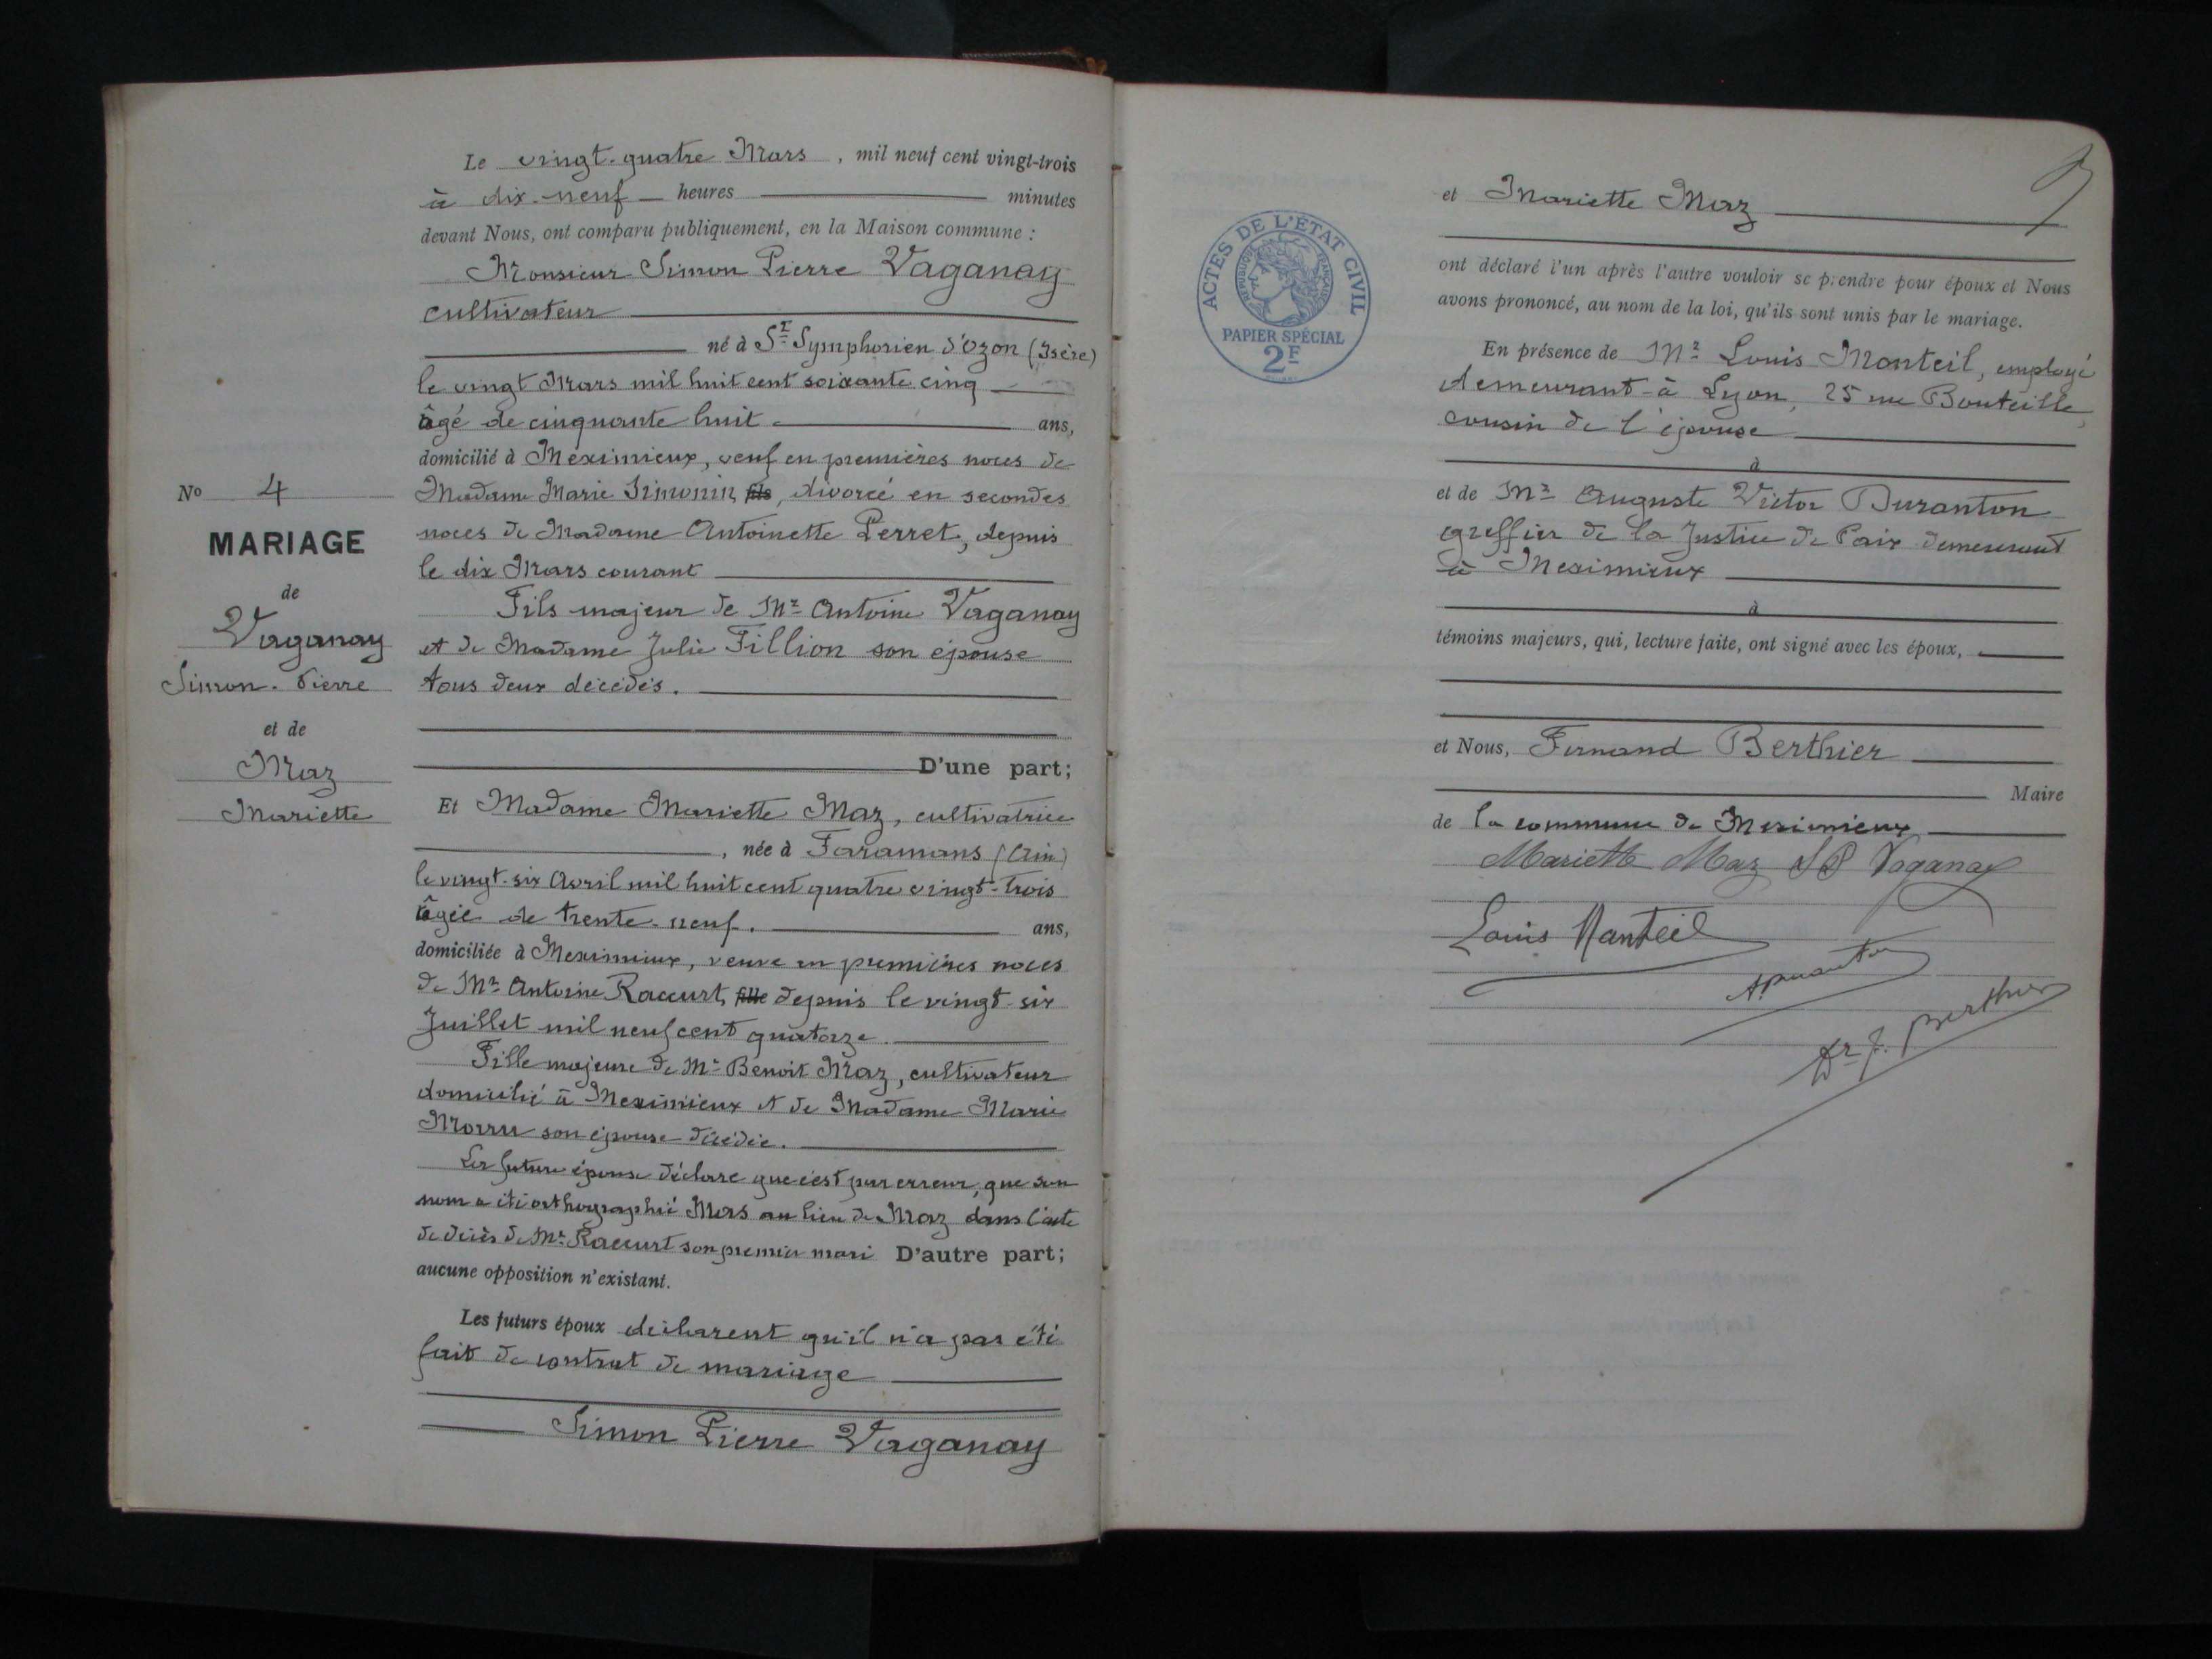 No 4
MARIAGE
de
Vaganay
Simon-Pierre
et de
Maz
Mariette
Le vingt-quatre Mars, mil neuf cent vingt-trois
à dix-neuf heures minutes
devant Nous, ont comparu publiquement, en la Maison commune :
Monsieur Simon Pierre Vaganay
cultivateur
né à St Symphorien d'Ozon (Isère)
le vingt Mars mil huit cent soixante cinq
âgé de cinquante huit ans,
domicilié à Meximieux, veuf en premières noces de
Madame Marie Simonin, fils, divorcé en secondes
noces de Madame Antoinette Perret, depuis
le dix Mars courant
Fils majeur de Mr Antoine Vaganay
et de Madame Julie Fillion son épouse
tous deux décédés.
D'une part;
Et Madame Mariette Maz, cultivatrice
, née à Faramans (Ain)
le vingt-six Avril mil huit cent quatre vingt-trois
âgée de trente-neuf. ans,
domiciliée à Meximieux, veuve en premières noces
de Mr Antoine Raccurt, fille depuis le vingt-six
Juillet mil neuf cent quatorze.
Fille majeure de Mr Benoit Maz, cultivateur
domicilié à Meximieux et de Madame Marie
son épouse décédée.
La future épouse déclare que c'est par erreur, que son
nom a été orthographié Mas au lieu de Maz dans l'acte
de décès de Mr Raccurt son premier mari D'autre part;
aucune opposition n'existant.
Les futurs époux déclarent qu'il n'a pas été
fait de contrat de mariage
Simon Pierre Vaganay
ACTES DE L'ÉTAT CIVIL
RÉPUBLIQUE FRANÇAISE
PAPIER SPÉCIAL
2F
et Mariette Maz
ont déclaré l'un après l'autre vouloir se prendre pour époux et Nous
avons prononcé, au nom de la loi, qu'ils sont unis par le mariage.
En présence de Mr Louis Monteil, employé
demeurant à Lyon, 25 rue Bouteille,
cousin de l'épouse
à
et de Mr Auguste Victor Duranton
greffier de la Justice de Paix demeurant
à Meximieux
à
témoins majeurs, qui, lecture faite, ont signé avec les époux,
et Nous, Fernand Berthier
Maire
de la commune de Meximieux
Mariette Maz SP Vaganay
Louis Manteil
Dr F. Berthier